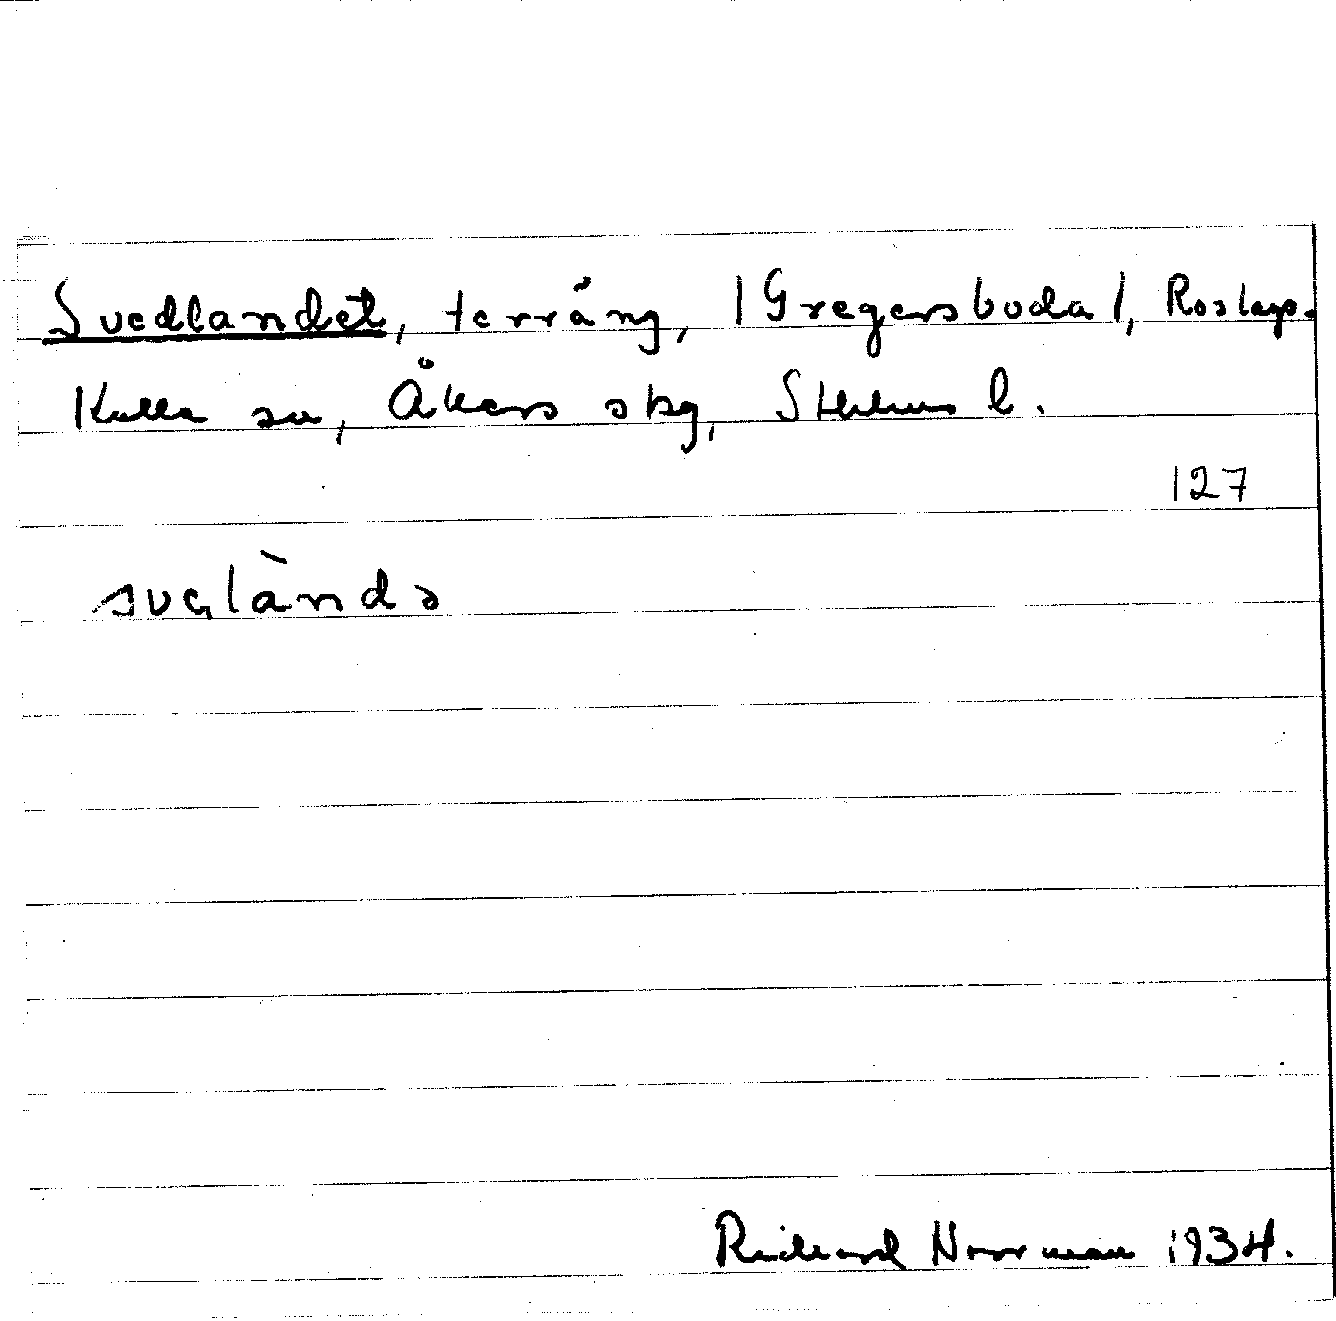 Svedlandet, terräng, /Gregersboda/, Roslags-
Kulla sn, Åkers skg, Sthlms l.
127
Richard Norrman 1934.